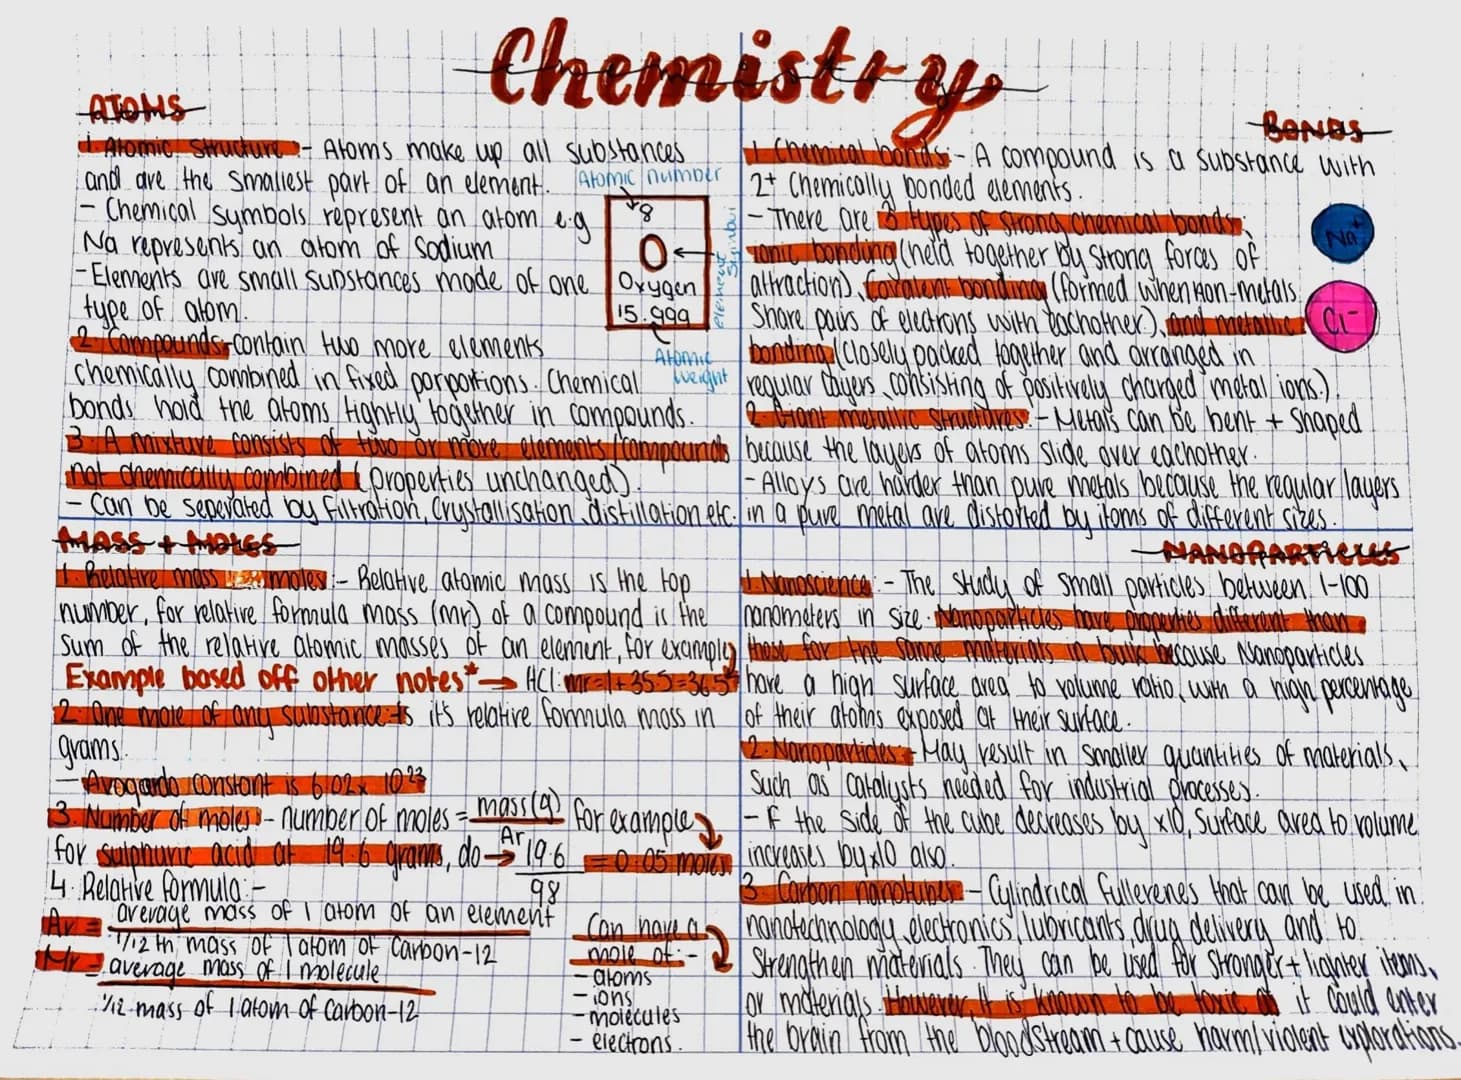 Chemistry
ATOMS
1. Atomic Structure:- Atoms make up all substances
and are the smallest part of an element.
- Chemical symbols represent an atom e.g
Na represents an atom of sodium
- Elements are small substances made of one
type of atom.
Atomic number
8
O
Oxygen
15.999
element symbol
Atomic
weight
2. Compounds-contain two more elements
chemically combined in fixed porportions. Chemical
bonds hold the atoms tightly together in compounds.
3. A mixture consists of two or more elements/compounds
not chemically combined (properties unchanged).
- Can be seperated by filtration, crystallisation, distillation etc.
BONDS
1. Chemical bonds:- A compound is a substance with
2+ chemically bonded elements.
- There are 3 types of strong chemical bonds:
ionic bonding (held together by strong forces of
attraction), Covalent bonding (formed when non-metals
share pairs of electrons with eachother), and metallic
bonding (closely packed together and arranged in
regular layers, consisting of positively charged metal ions.)
Na+
Cl-
2. Giant metallic structures:- Metals can be bent + shaped
because the layers of atoms slide over eachother.
- Alloys are harder than pure metals because the regular layers
in a pure metal are distorted by itoms of different sizes.
MASS + MOLES
1. Relative mass moles:- Relative atomic mass is the top
number, for relative formula mass (mr) of a compound is the
sum of the relative atomic masses of an element, for example,
Example based off other notes* → HCl: mr=1+35.5=36.5
2. One mole of any substance:- Is it's relative formula mass in
grams.
- Avogardo constant is 6.02x 10²³
3. Number of moles:- number of moles = mass(g)
Ar
for example
for sulphuric acid at 19.6 grams, do → 19.6
98
= 0.05 moles.
4. Relative formula:-
Ar = average mass of 1 atom of an element
1/12th mass of 1 atom of carbon-12
Mr = average mass of 1 molecule
1/12 mass of 1 atom of carbon-12
Can have a
mole of:-
- atoms
- ions
- molecules
- electrons.
NANOPARTICLES
1. Nanoscience:- The study of small particles between 1-100
nanometers in size. Nanoparticles have properties different than
those for the same materials in bulk because Nanoparticles
have a high surface area to volume ratio, with a high percentage
of their atoms exposed at their surface.
2. Nanoparticles:- May result in smaller quantities of materials,
such as catalysts needed for industrial processes.
- If the side of the cube decreases by x10, surface area to volume
increases by x10 also.
3. Carbon nanotubes:- Cylindrical fullerenes that can be used in
nanotechnology, electronics, lubricants, drug delivery and to
strengthen materials. They can be used for stronger + lighter items,
or materials. However, It is known to be toxic as it could enter
the brain from the bloodstream + cause harm/violent explorations.